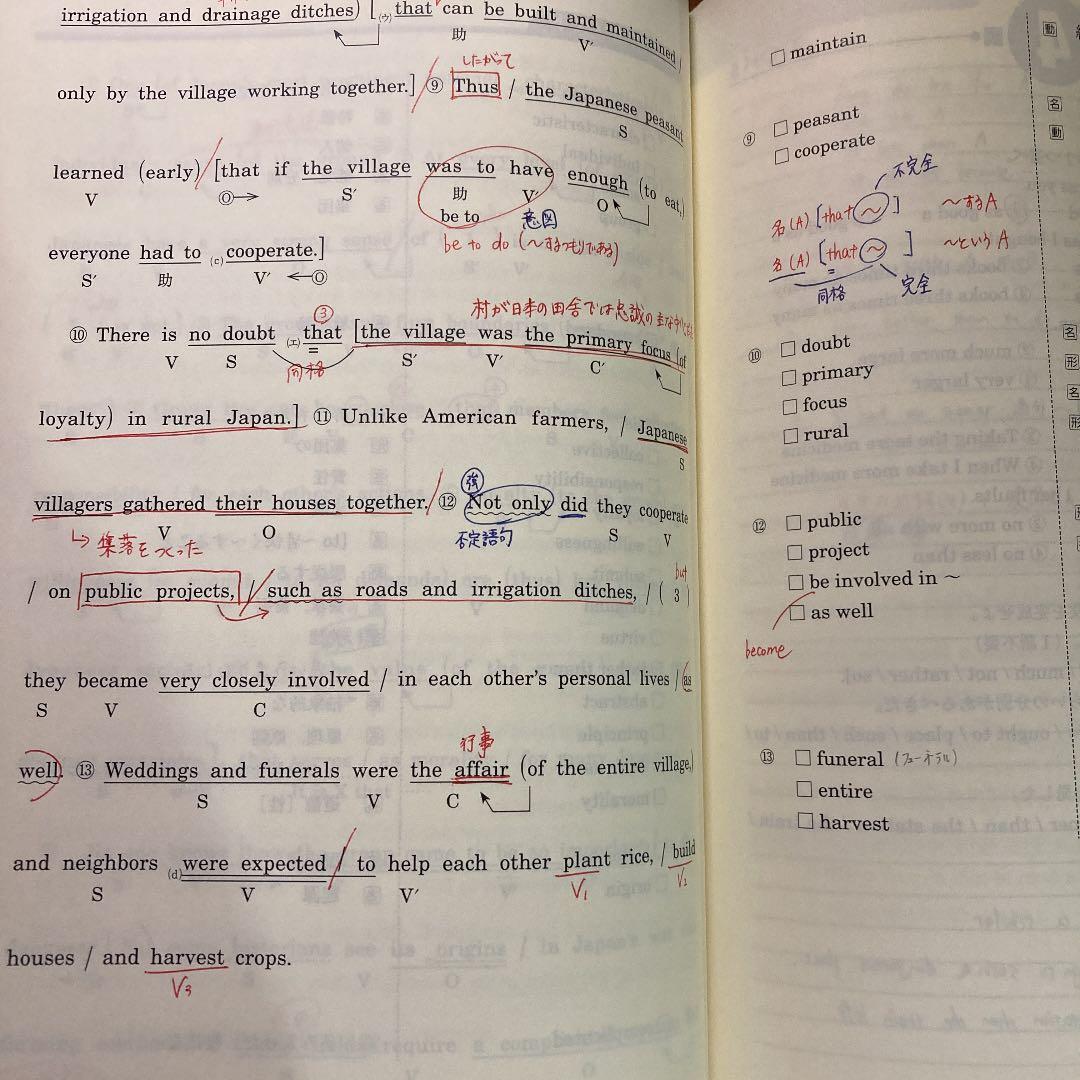 irrigation and drainage ditches) [(ウ)that can be built and maintained /
助 V′
only by the village working together.] / ⑨ Thus / the Japanese peasant
したがって
S
learned (early) / [that if the village was to have enough (to eat,)
V Ⓞ→ S′ 助 V′ O
be to 意図
be to do (〜するつもりである)
everyone had to (c)cooperate.]
S′ 助 V′ ←Ⓞ
③
⑩ There is no doubt (エ)that [the village was the primary focus (of
V S = S′ V′ C′
同格
loyalty) in rural Japan.] ⑪ Unlike American farmers, / Japanese
S
villagers gathered their houses together. / ⑫ Not only did they cooperate
V O 強 否定語句 S V
↳ 集落をつくった
/ on public projects, / such as roads and irrigation ditches, / ( 3 )
but
they became very closely involved / in each other's personal lives / as
S V C
well. ⑬ Weddings and funerals were the affair (of the entire village,)
行事
S V C
and neighbors (d)were expected / to help each other plant rice, / build
S V V′ V₁ V₂
houses / and harvest crops.
V₃
□ maintain
⑨ □ peasant
□ cooperate
不完全
名(A) [that 〜] 〜するA
名(A) [that 〜] 〜というA
=
同格 完全
⑩ □ doubt
□ primary
□ focus
□ rural
⑫ □ public
□ project
□ be involved in 〜
□ as well
become
⑬ □ funeral (フューネラル)
□ entire
□ harvest
動
名
動
名
形
名
形